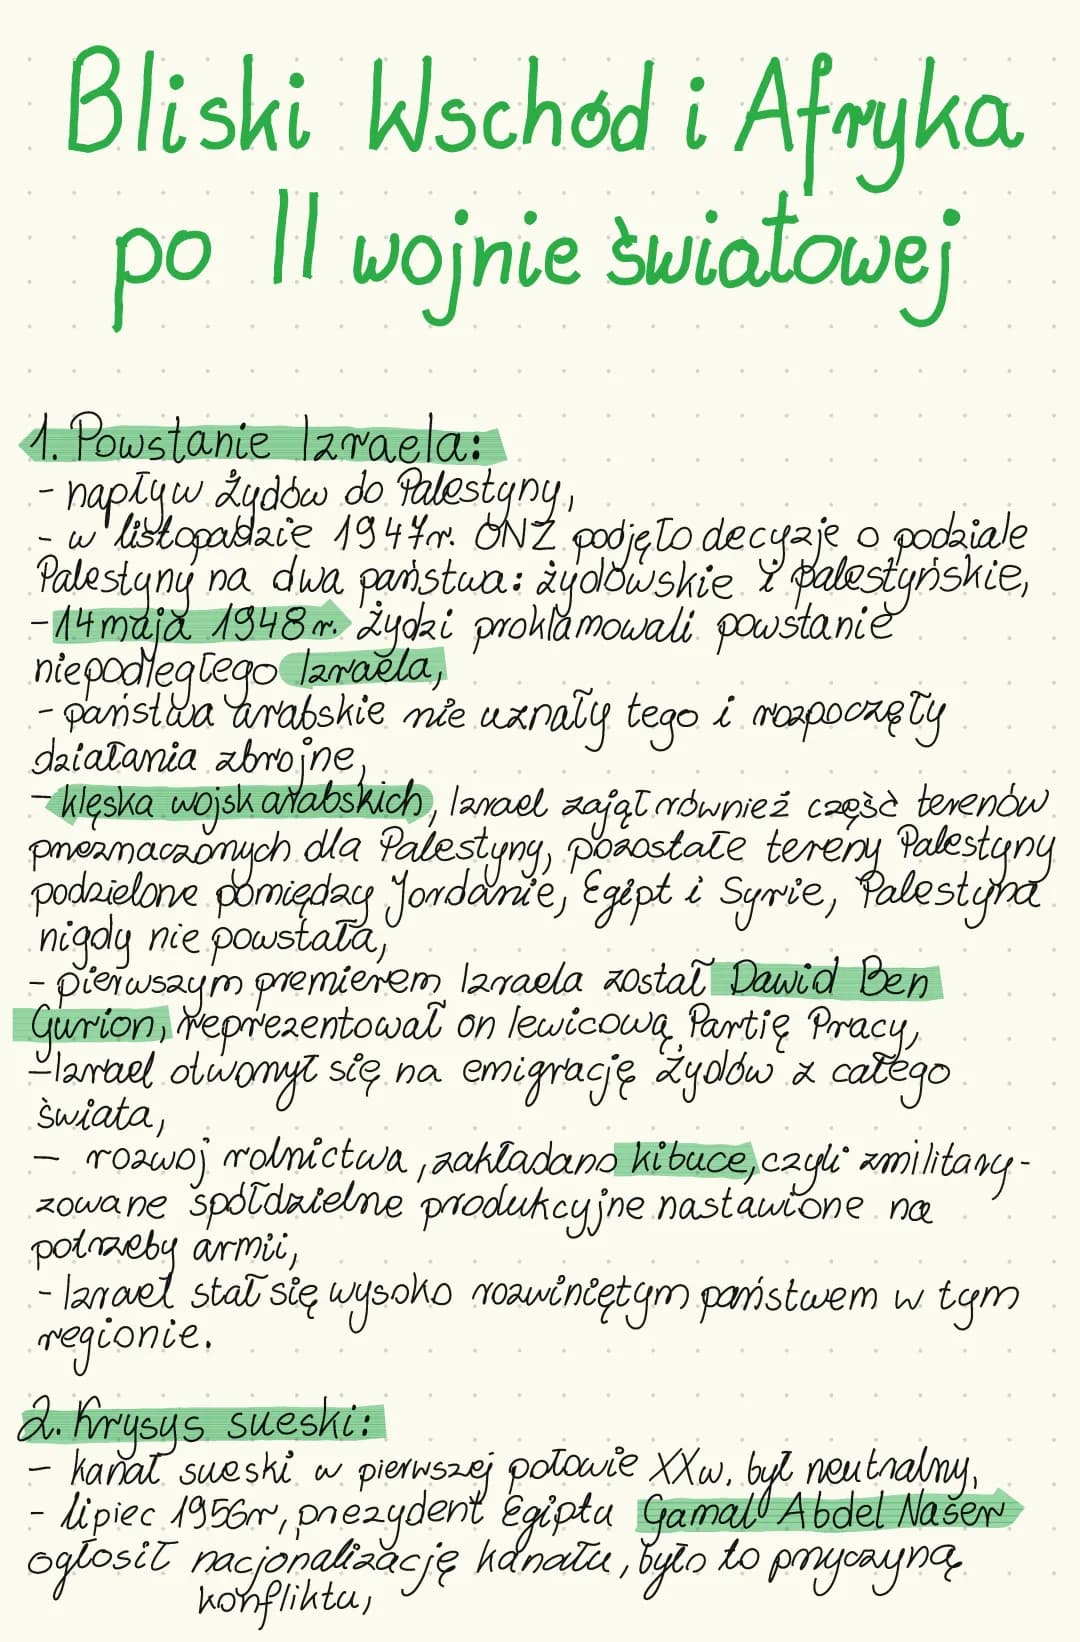 Bliski Wschód i Afryka
po II wojnie światowej
1. Powstanie Izraela:
- napływ Żydów do Palestyny,
- w listopadzie 1947r. ONZ podjęło decyzje o podziale
Palestyny na dwa państwa: żydowskie i palestyńskie,
- 14 maja 1948r. Żydzi proklamowali powstanie
niepodległego Izraela,
- państwa arabskie nie uznały tego i rozpoczęły
działania zbrojne,
- klęska wojsk arabskich, Izrael zajął również część terenów
przeznaczonych dla Palestyny, pozostałe tereny Palestyny
podzielone pomiędzy Jordanie, Egipt i Syrie, Palestyna
nigdy nie powstała,
- pierwszym premierem Izraela został Dawid Ben
Gurion, reprezentował on lewicową Partię Pracy,
- Izrael otworzył się na emigrację Żydów z całego
świata,
- rozwoj rolnictwa, zakładano kibuce, czyli zmilitary-
zowane spółdzielne produkcyjne nastawione na
potrzeby armii,
- Izrael stał się wysoko rozwiniętym państwem w tym
regionie.
2. Krysys sueski:
- kanał sueski w pierwszej połowie XXw. był neutralny,
- lipiec 1956r, prezydent Egiptu Gamal Abdel Naser
ogłosił nacjonalizację kanału, było to przyczyną
konfliktu,